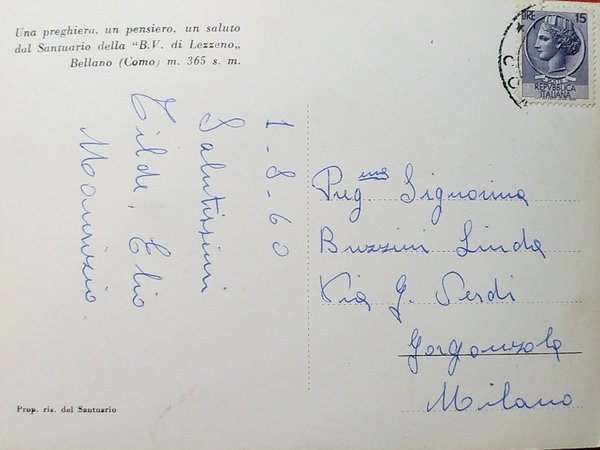 Una preghiera, un pensiero, un saluto
dal Santuario della "B.V. di Lezzeno„
Bellano (Como) m. 365 s. m.
1-8-60
Salutissimi
Tilde, Elio
Maurizio
Prop. ris. del Santuario
LIRE 15
POSTE
REPVBBLICA
ITALIANA
Preg.ma Signorina
Buzzini Linda
Via G. Verdi
Gorgonzola
Milano